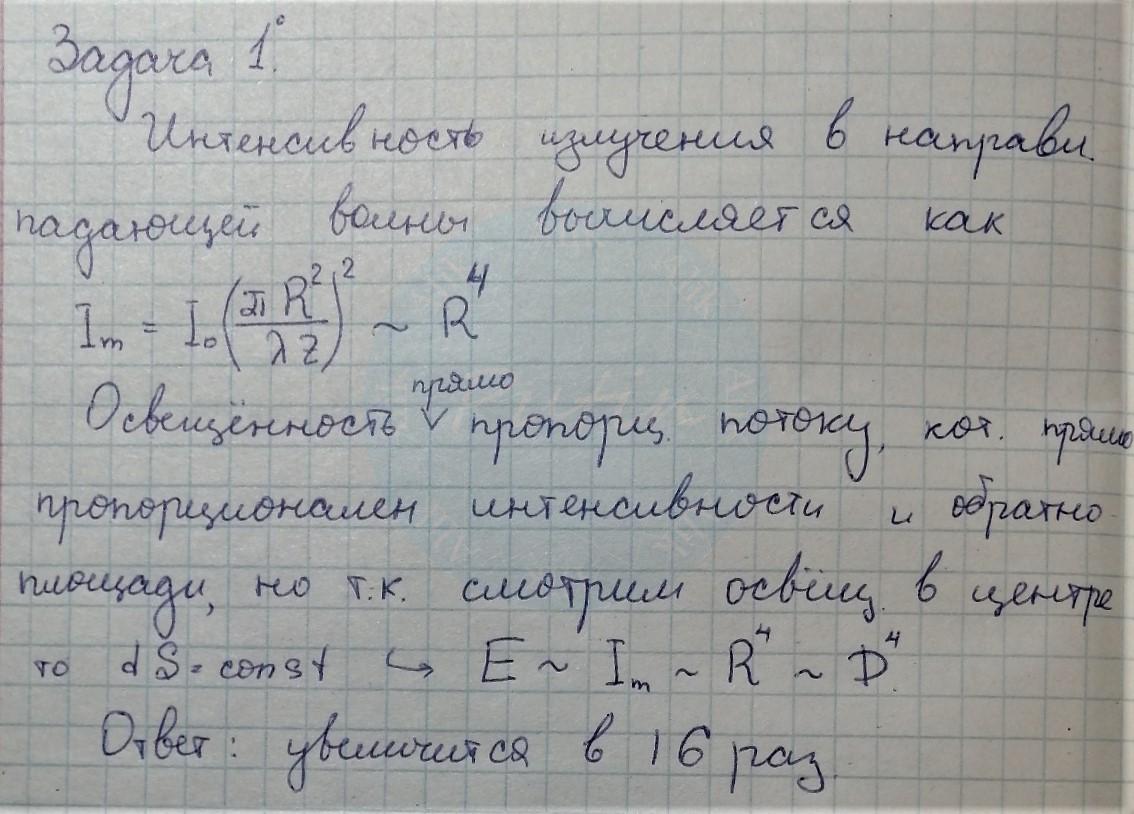 Задача 1°.
Интенсивность излучения в направл.
падающей волны вычисляется как
I_m = I_0 (πR²/λz)² ~ R⁴
прямо
Освещённость ∨ пропорц. потоку, кот. прямо
пропорционален интенсивности и обратно
площади, но т.к. смотрим освещ. в центре
то dS = const ↪ E ~ I_m ~ R⁴ ~ D⁴.
Ответ: увеличится в 16 раз.